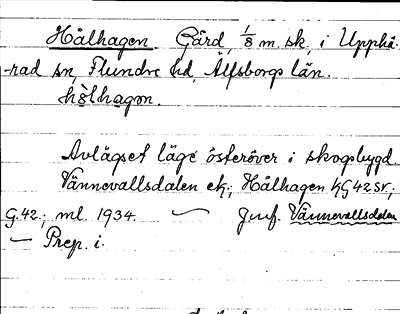 Hålhagen. Gård, 1/8 m. sk., i Upphä-
-rad sn, Flundre hd, Älfsborgs län.
hòlhagon.
Avlägset läge österöver i skogsbygd.
Vännevallsdalen ek.; Hålhagen hG42Sr.;
G.42.; ml. 1934. — Jmf. Vännevallsdalen
— Prep. i.